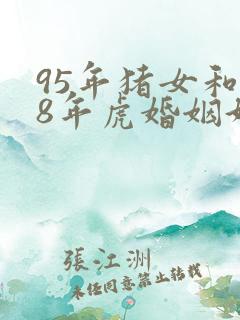 95年猪女和
8年虎婚姻
張江洲
未经同意禁止转载